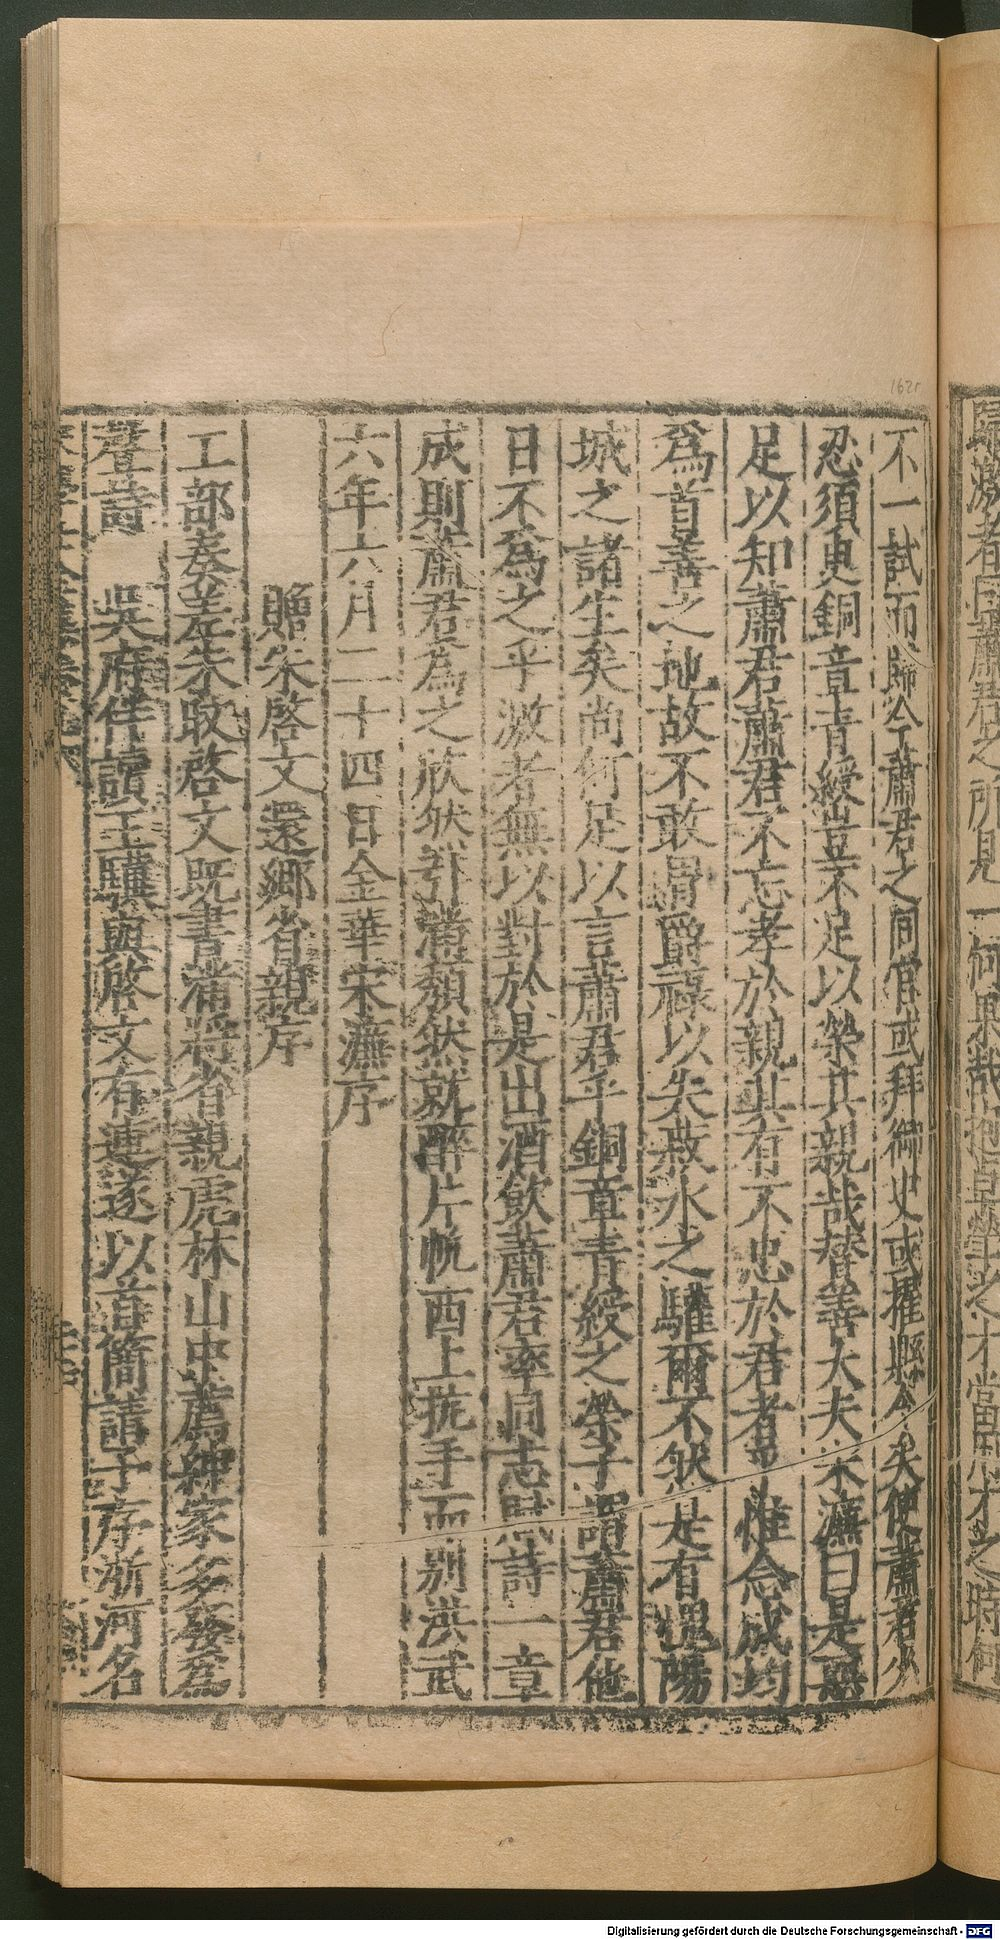 不一試而歸今蕭君之同官或拜御史或擢縣令矣使蕭君少
忍須臾銅章青綬豈不足以榮其親哉替善大夫宋濂曰是惡
足以知蕭君蕭君不忘孝於親其有不忠於君者 惟念成均
爲首善之地故不敢冒爵祿以失菽水之驩爾不然是有愧陽
城之諸生矣尚何足以言蕭君乎銅章青綬之榮子謂蕭君他
日不爲之乎激者無以對於是出酒飲蕭君率同志賦詩一章
成則蕭君爲之欣然引滿頹然就醉片帆西上捬手而别洪武
六年六月二十四日金華宋濂序
贈朱啓文還鄉省親序
工部奏差朱 啓文既書滿將省親虎林山中薦紳家多發爲
聲詩 吳府伴讀王驥與啓文有連遂以首簡請予序浙河名
1621
Digitalisierung gefördert durch die Deutsche Forschungsgemeinschaft - DFG